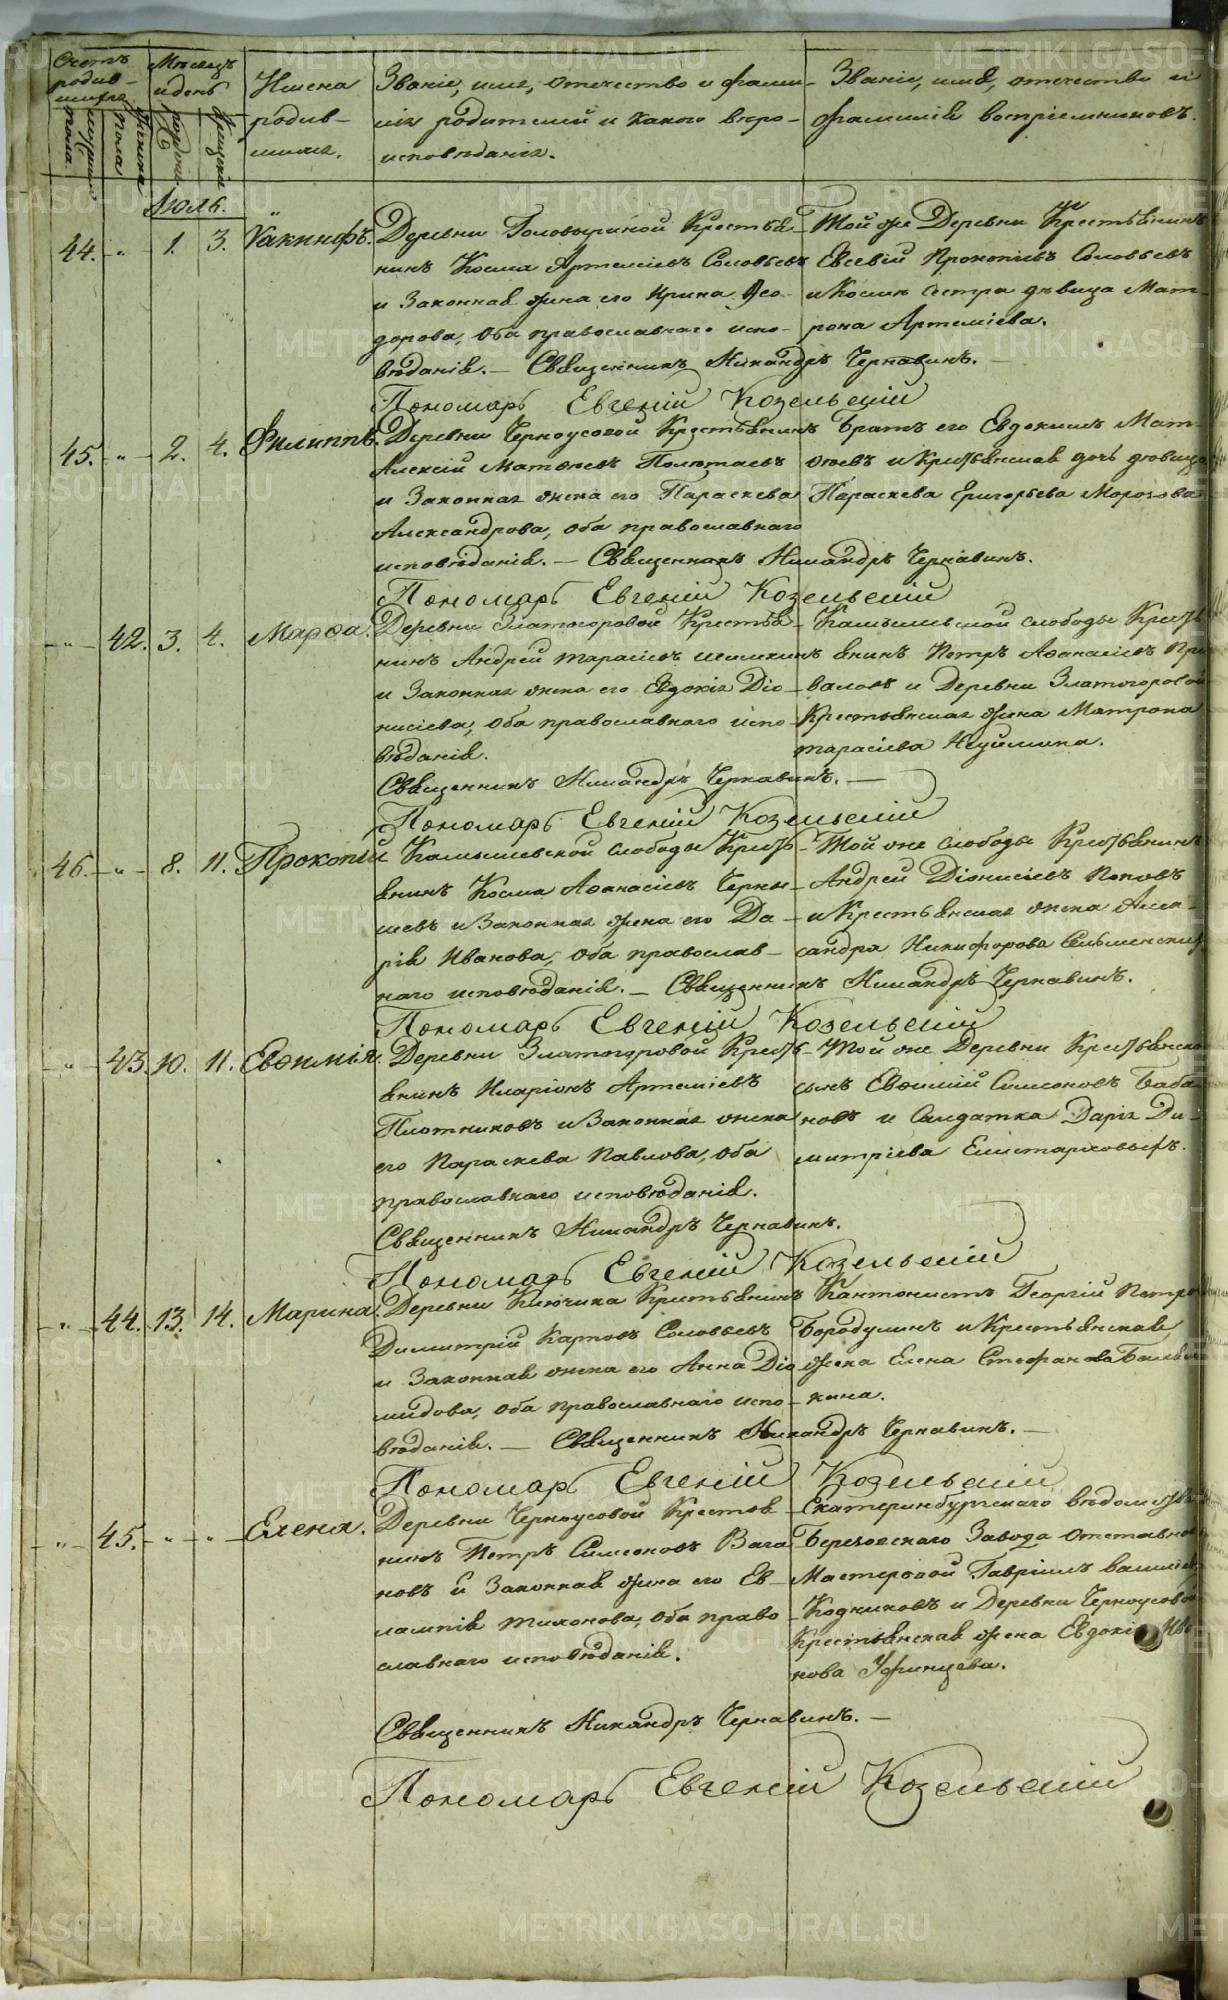 Счетъ родив-шихся
Мѣсяцъ и день
Имена родив-шихся.
Званіе, имя, отчество и фами-
лія родителей и какого веро-
исповѣданія.
Званіе, имя, отчество и
фамилія воспріемниковъ.
мужеска пола
женска
рожденія
крещенія
Іюль.
44. „ 1. 3. Уакинфъ.
Деревни Головыриной Крестья-
нинъ Косма Артеміевъ Соловьевъ
и Законная жена его Ирина Ѳео-
дорова, оба православнаго испо-
вѣданія. – Священникъ Никандръ Чернавинъ. –
Пономарь Евгеній Козельскій
Той же Деревни Крестьянинъ
Евсевій Прокопіевъ Соловьевъ
и Космы сестра дѣвица Мат-
рона Артеміева.
45. „ 2. 4. Филиппъ.
Деревни Черноусовой Крестьянинъ
Алексій Матѳеевъ Полютаевъ
и Законная жена его Параскева
Александрова, оба православнаго
исповѣданія. – Священникъ Никандръ Чернавинъ.
Пономарь Евгеній Козельскій
Братъ его Евдокимъ Мат-
ѳеевъ и Крестьянская дочь дѣвица
Параскева Григорьева Морозова
„ 42. 3. 4. Марѳа.
Деревни Златогоровой Крестья-
нинъ Андрей Тарасіевъ
и Законная жена его Евдокія Діо-
нисіева, оба православнаго испо-
вѣданія.
Священникъ Никандръ Чернавинъ. –
Пономарь Евгеній Козельскій
Камышевской слободы Кресть-
янинъ Петръ Аѳанасіевъ При-
валовъ и Деревни Златогоровой
Крестьянская жена Матрона
Тарасіева Неуймина.
46. „ 8. 11. Прокопій
Камышевской слободы Кресть-
янинъ Косма Аѳанасіевъ Черны-
шевъ и Законная жена его Да-
рія Иванова, оба православ-
наго исповѣданія. – Священникъ Никандръ Чернавинъ.
Пономарь Евгеній Козельскій
Той же слободы Крестьянинъ
Андрей Діонисіевъ Поповъ
и Крестьянская жена Алек-
сандра Никифорова
„ 43. 10. 11. Евѳимія.
Деревни Златогоровой Кресть-
янинъ Иларіонъ Артеміевъ
Плотниковъ и Законная жена
его Параскева Павлова, оба
православнаго исповѣданія.
Священникъ Никандръ Чернавинъ.
Пономарь Евгеній Козельскій
Той же Деревни Крестьянской
сынъ Евѳимій Симеоновъ Баба-
новъ и Солдатка Дарія Ди-
митріева
„ 44. 13. 14. Марина.
Деревни Ключика Крестьянинъ
Димитрій Карповъ Соловьевъ
и Законная жена его Анна Діо-
мидова, оба православнаго испо-
вѣданія. – Священникъ Никандръ Чернавинъ. –
Пономарь Евгеній Козельскій
Кантонистъ Георгій Петровъ
Бородулинъ и Крестьянская
жена Елена Стефанова
кина.
„ 45. „ „ Елена.
Деревни Черноусовой Крестья-
нинъ Петръ Симеоновъ Вага-
новъ и Законная жена его Ев-
лампія Тихонова, оба право-
славнаго исповѣданія.
Священникъ Никандръ Чернавинъ. –
Пономарь Евгеній Козельскій
Екатеринбургскаго вѣдомства
Березовскаго Завода отставной
Мастеровой Гавріилъ
Кодниковъ и Деревни Черноусовой
Крестьянская жена Евдокія Ива-
нова Уфинцева.
METRIKI.GASO-URAL.RU